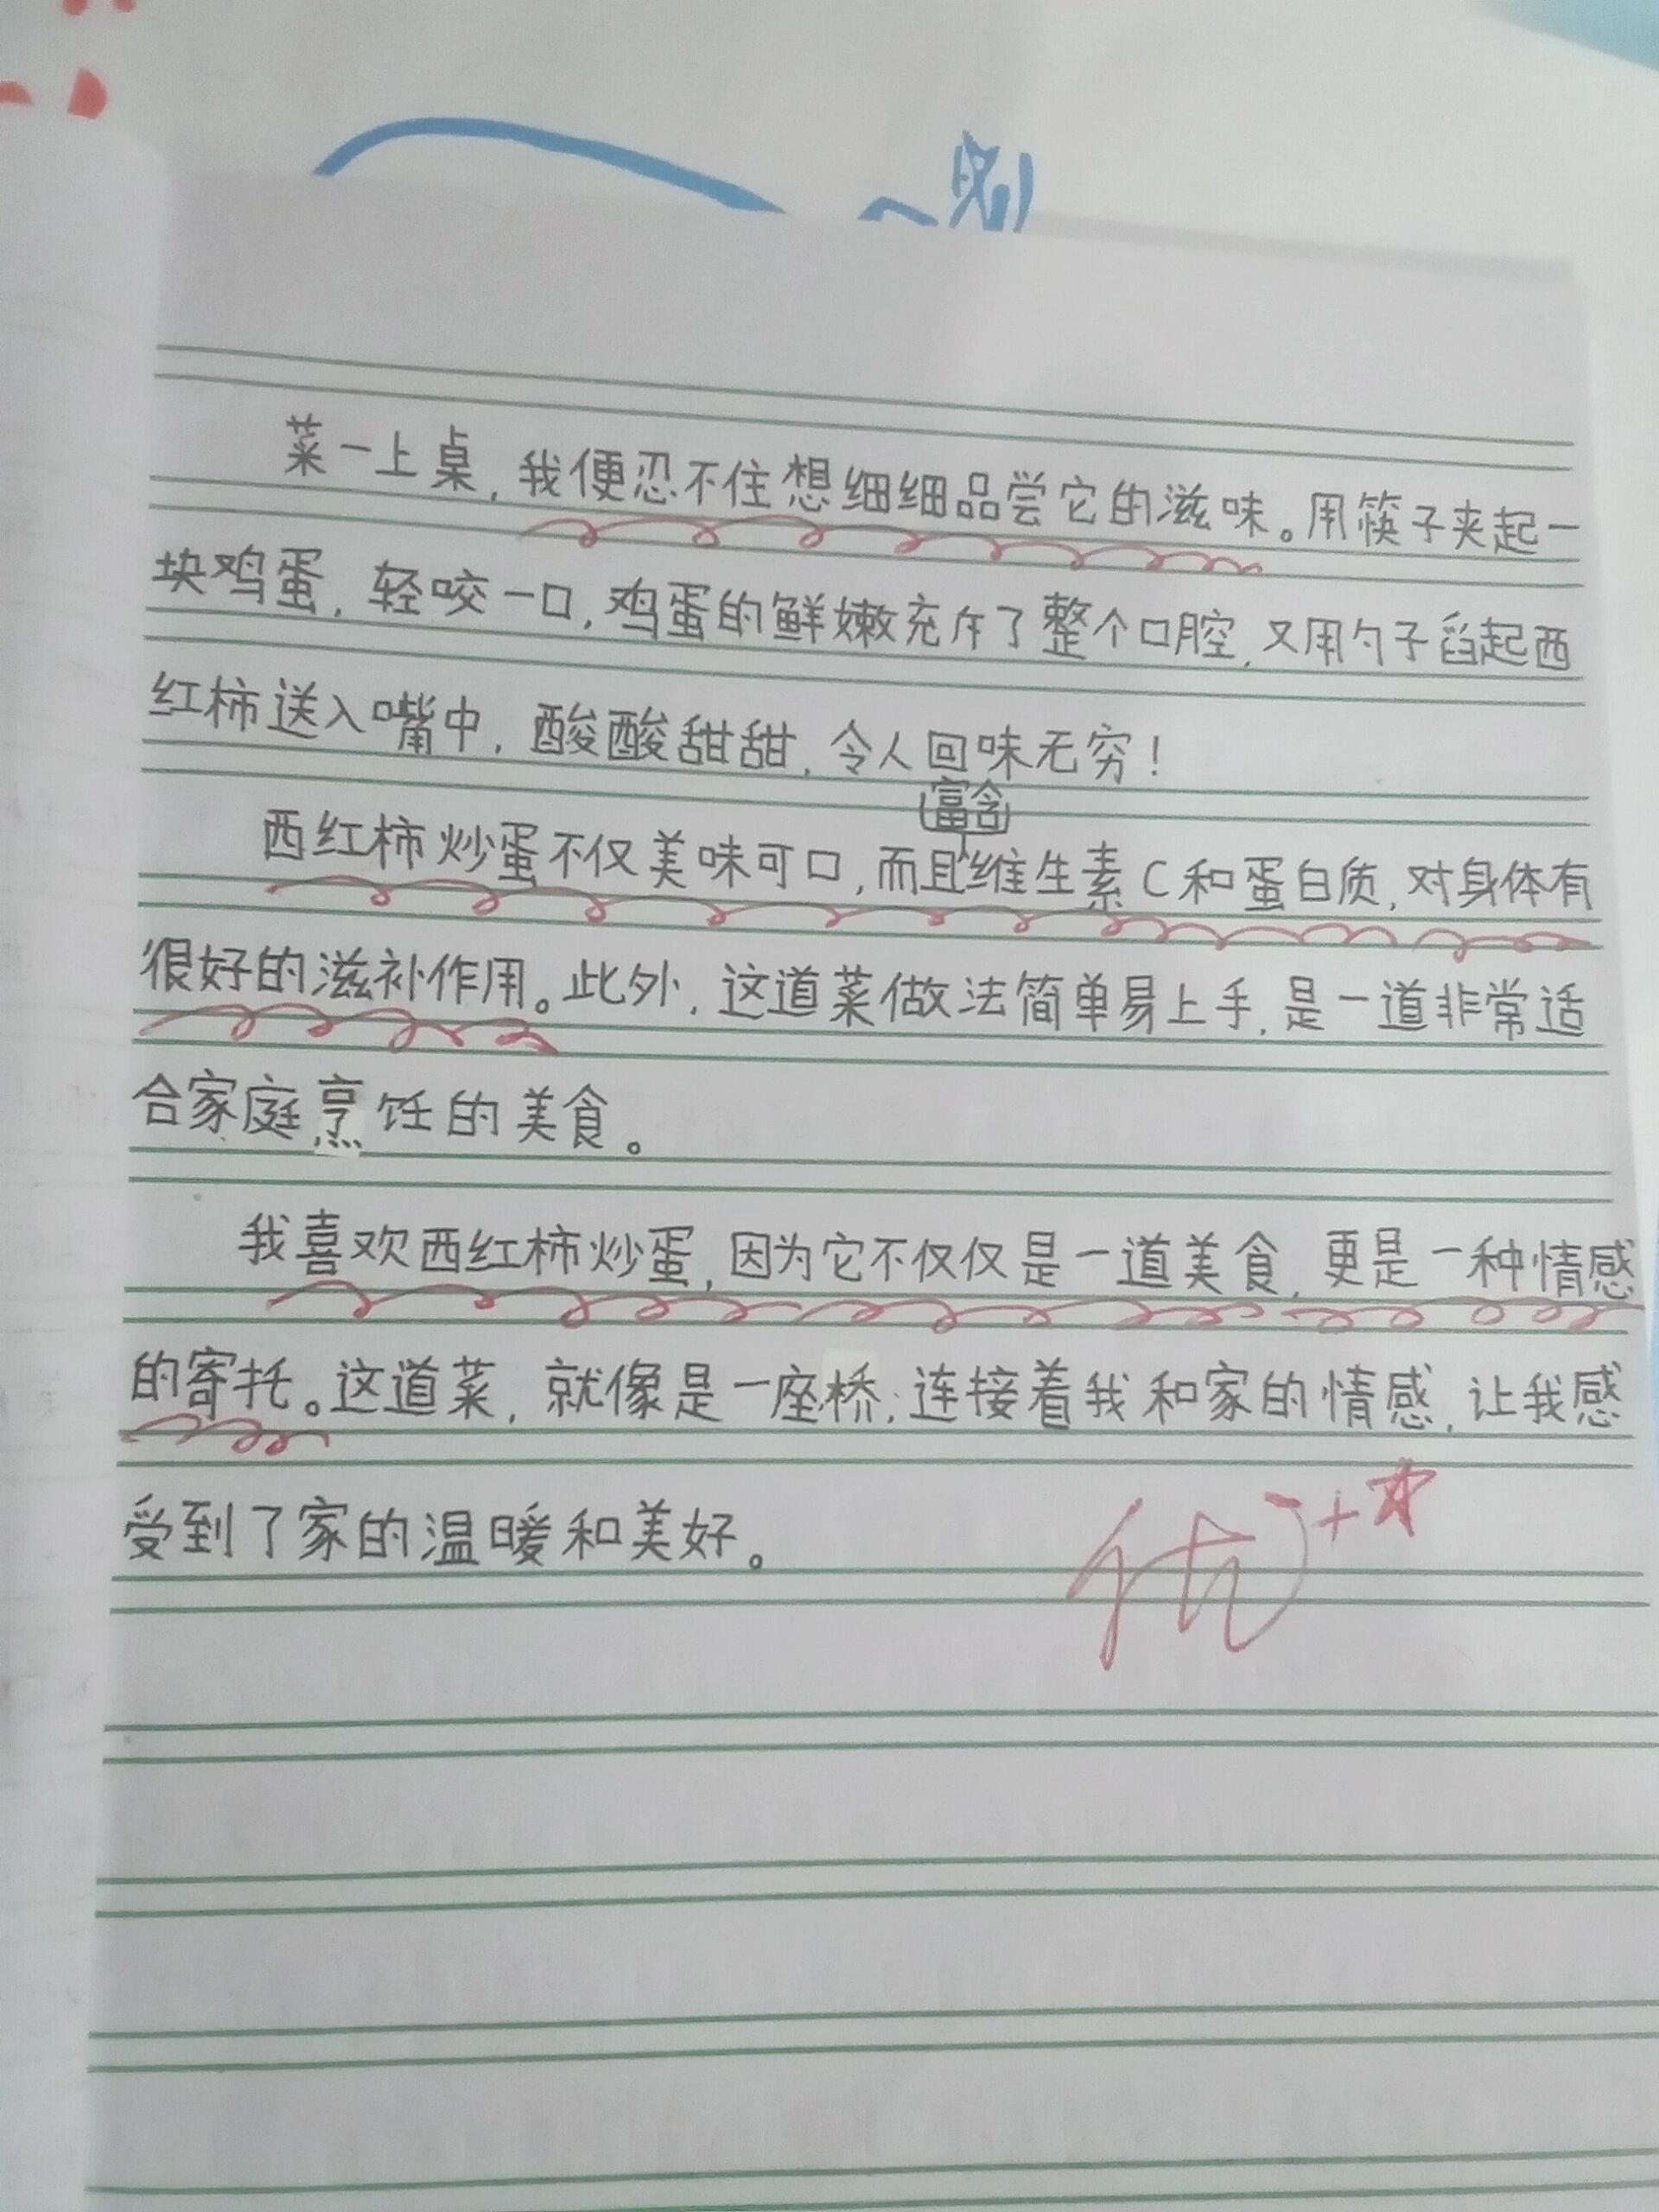 菜一上桌，我便忍不住想细细品尝它的滋味。用筷子夹起一
块鸡蛋，轻咬一口，鸡蛋的鲜嫩充斥了整个口腔，又用勺子舀起西
红柿送入嘴中，酸酸甜甜，令人回味无穷！
富含
西红柿炒蛋不仅美味可口，而且维生素C和蛋白质，对身体有
很好的滋补作用。此外，这道菜做法简单易上手，是一道非常适
合家庭烹饪的美食。
我喜欢西红柿炒蛋，因为它不仅仅是一道美食，更是一种情感
的寄托。这道菜，就像是一座桥，连接着我和家的情感，让我感
受到了家的温暖和美好。
优+